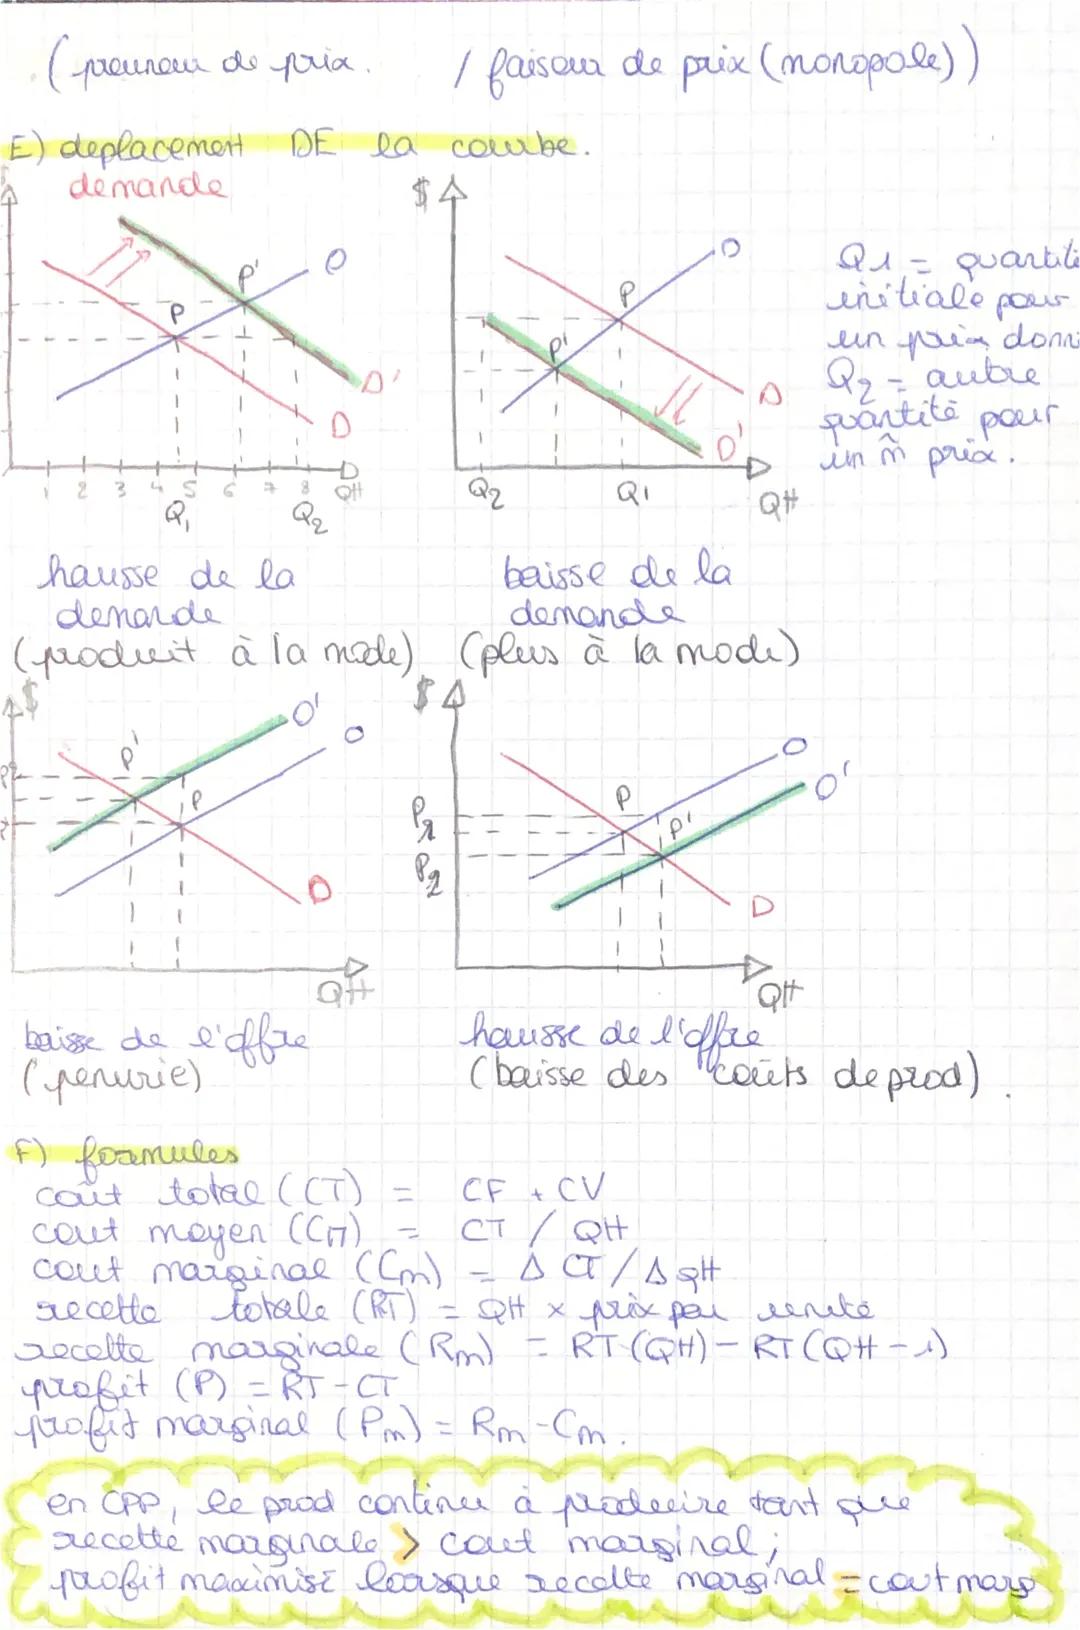 (preneur de prix. / faiseur de prix (monopole))
E) deplacement DE la courbe.
demande
$
P'
O
P
D'
D
1 2 3 4 5 6 7 8 QH
Q1 Q2
$
O
P
P'
D
D'
Q2 Q1 QH
Q1 = quantité
initiale pour
un prix donn
Q2 = autre
quantité pour
un m̂ prix.
hausse de la
demande
(produit à la mode)
baisse de la
demande
(plus à la mode)
$
O'
O
P'
P
D
QH
$
O
O'
P
P'
P1
P2
D
QH
baisse de l'offre
(penurie)
hausse de l'offre
(baisse des coûts de prod).
F) formules
coût total (CT) = CF + CV
cout moyen (CM) = CT / QH
cout marginal (Cm) = Δ CT / Δ QH
recette totale (RT) = QH x prix par unité
recette marginale (Rm) = RT (QH) - RT (QH - 1)
profit (P) = RT - CT
profit marginal (Pm) = Rm - Cm.
en CPP, le prod continue à produire tant que
recette marginale > cout marginal;
profit maximisé lorsque recette marginal = cout marg